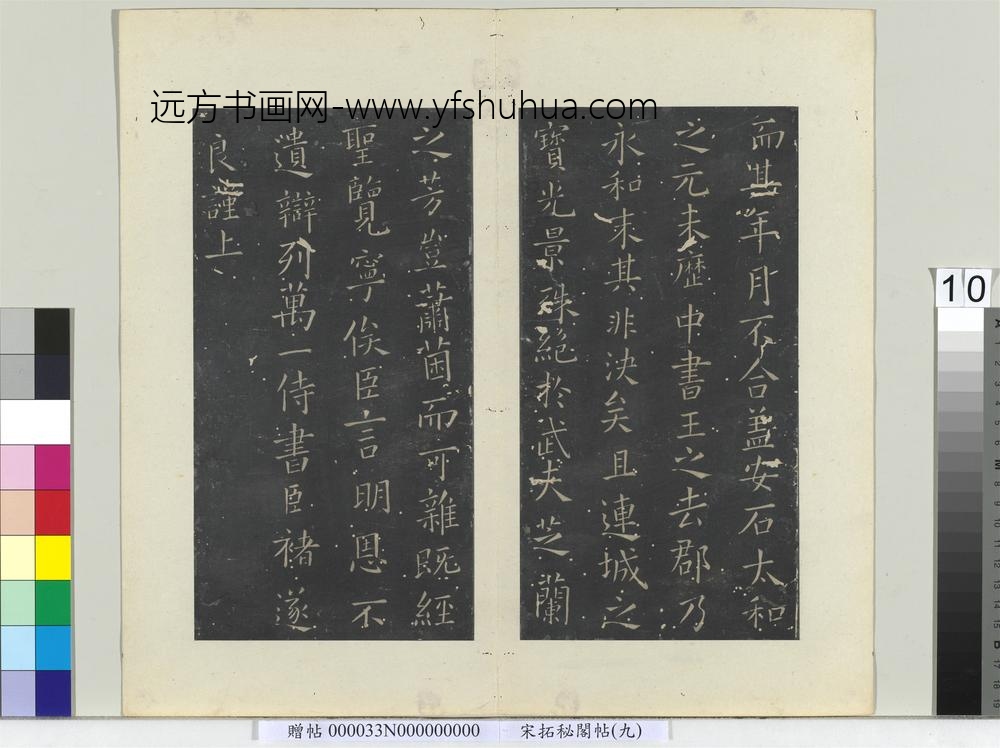 远方书画网-www.yfshuhua.com
而其年月不合盖安石太和
之元未歷中書王之去郡乃
永和末其非決矣且連城之
寶光景殊絕於武夫芝蘭
之芳豈蕭菌而可雜既經
聖覽寧俟臣言明恩不
遺辯列萬一侍書臣褚遂
良謹上
10
A 1 2 3 4 5 6 M 8 9 10 11 12 13 14 15 B 17 18 19
贈帖 000033N000000000 宋拓秘閣帖(九)